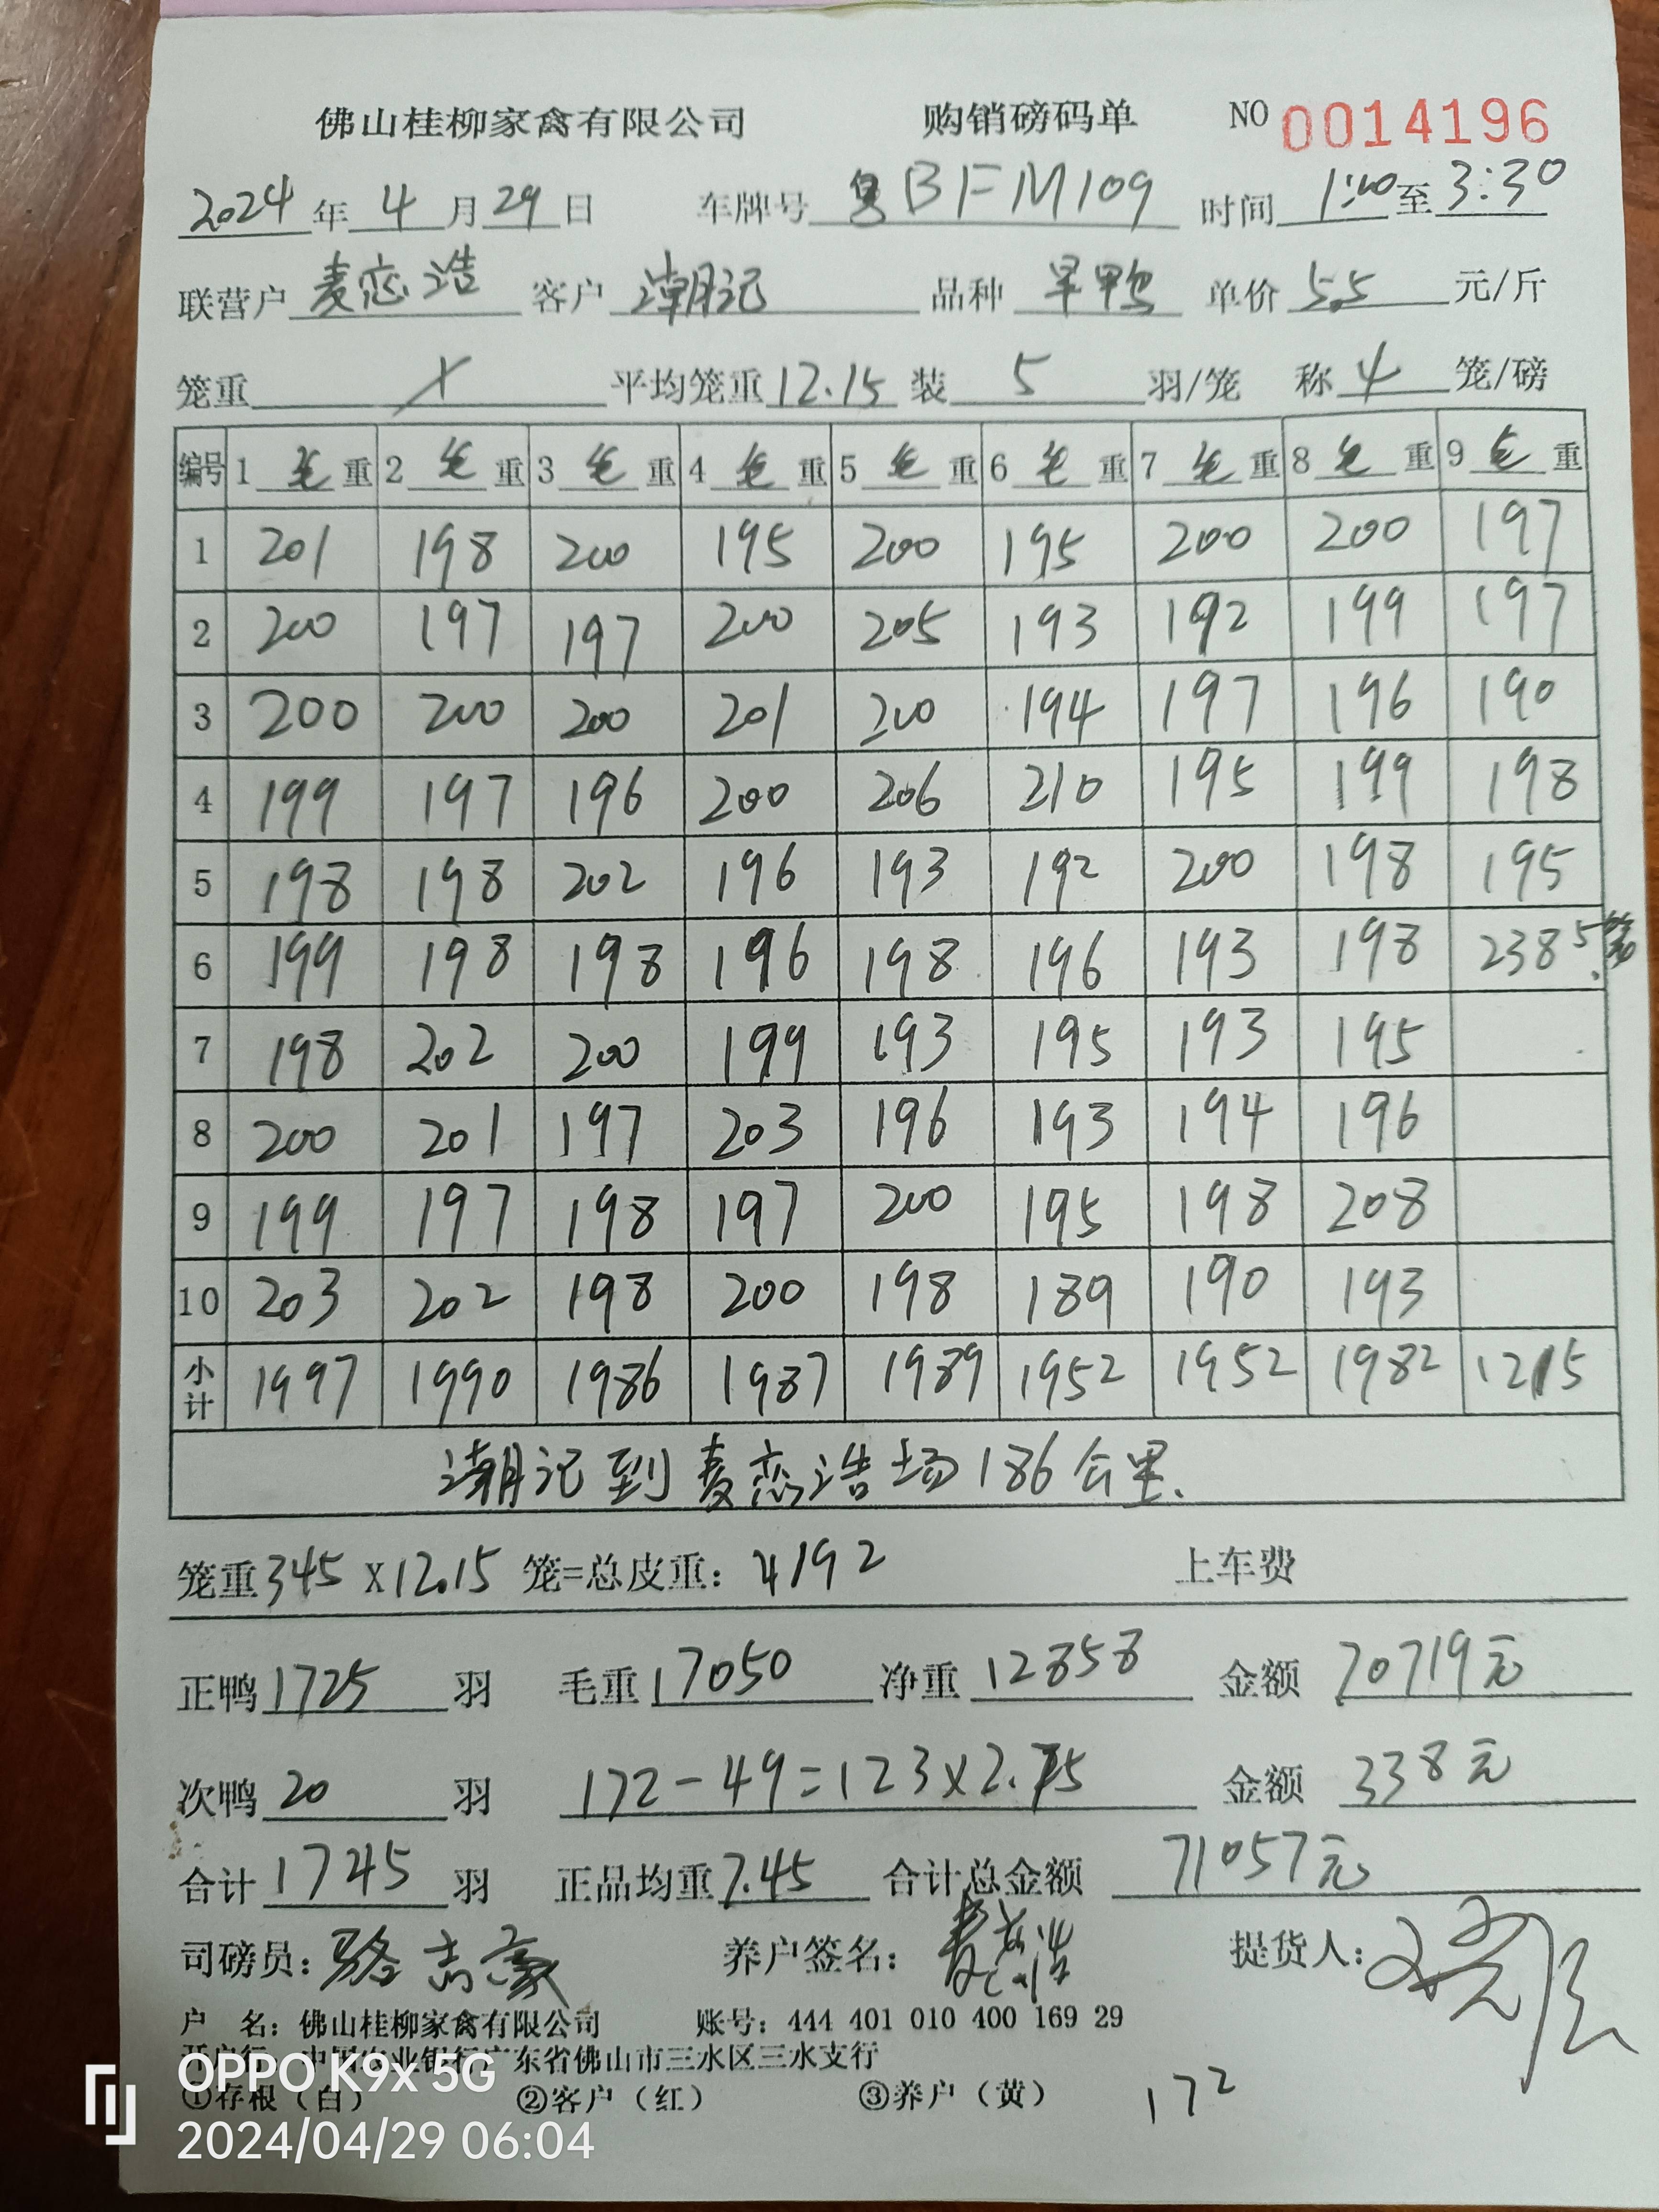 佛山桂柳家禽有限公司 购销磅码单 NO 0014196
2024年4月29日 车牌号 粤BFM109 时间 1:00至3:30
联营户 麦恋浩 客户 潮记 品种 旱鸭 单价 5.5 元/斤
笼重 平均笼重 12.15 装 5 羽/笼 称 4 笼/磅
编号 1 毛 重 2 毛 重 3 毛 重 4 毛 重 5 毛 重 6 毛 重 7 毛 重 8 毛 重 9 毛 重
1 201 198 200 195 200 195 200 200 197
2 200 197 197 200 205 193 192 199 197
3 200 200 200 201 200 194 197 196 190
4 199 197 196 200 206 210 195 199 198
5 198 198 202 196 193 192 200 198 195
6 199 198 198 196 198 196 193 198 238 5笼
7 198 202 200 199 193 195 193 195
8 200 201 197 203 196 193 194 196
9 199 197 198 197 200 195 198 208
10 203 202 198 200 198 189 190 193
小计 1997 1990 1986 1987 1989 1952 1952 1982 1215
潮记到麦恋浩场186公里.
笼重 345 X 12.15 笼=总皮重: 4192 上车费
正鸭 1725 羽 毛重 17050 净重 12858 金额 70719元
次鸭 20 羽 172-49=123×2.75 金额 338元
合计 1745 羽 正品均重 7.45 合计总金额 71057元
司磅员: 骆志豪 养户签名: 麦恋浩 提货人:
户 名: 佛山桂柳家禽有限公司 账号: 444 401 010 400 169 29
开户行 中国农业银行广东省佛山市三水区三水支行
①存根(白) ②客户(红) ③养户(黄) 172
OPPO K9x 5G
2024/04/29 06:04